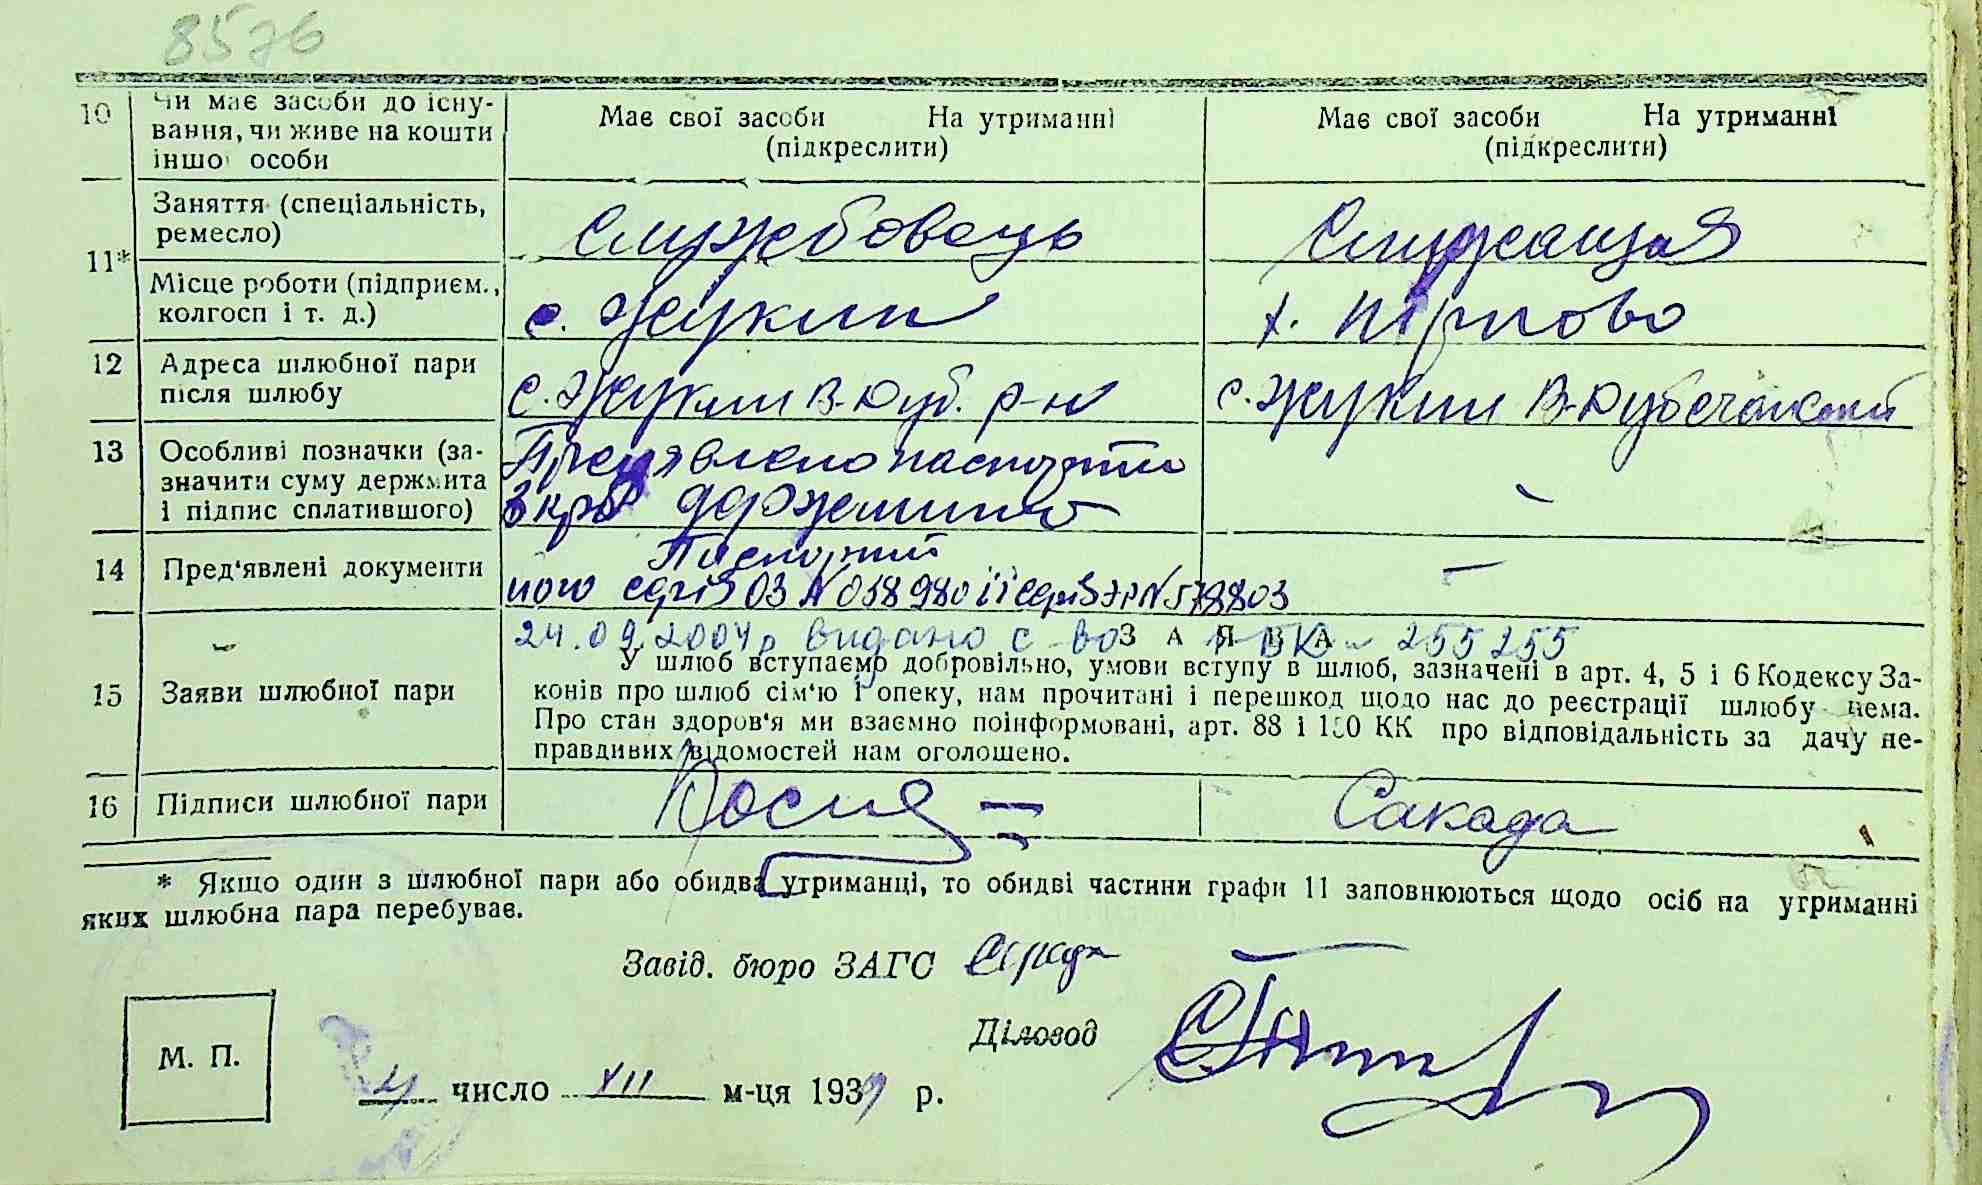 8576
10 Чи має засоби до існу- Має свої засоби На утриманні Має свої засоби На утриманні
вання, чи живе на кошти (підкреслити) (підкреслити)
іншої особи
Заняття (спеціальність, Службовець Служащая
ремесло)
11*
Місце роботи (підприєм., с. Жукин х.
колгосп і т. д.)
12 Адреса шлюбної пари с. Жукин В-Дуб. р-н с. Жукин В-Дубечанский
після шлюбу
13 Особливі позначки (за- паспорти –
значити суму держмита 3 крб держмита
і підпис сплатившого)
14 Пред'явлені документи Паспорти –
його серія 03 № 058980 її серія № 578803
24.09.2004р видано с-во І-БК 255255
З А Я В А
15 Заяви шлюбної пари У шлюб вступаємо добровільно, умови вступу в шлюб, зазначені в арт. 4, 5 і 6 Кодексу За-
конів про шлюб сім'ю і опеку, нам прочитані і перешкод щодо нас до реєстрації шлюбу нема.
Про стан здоров'я ми взаємно поінформовані, арт. 88 і 150 КК про відповідальність за дачу не-
правдивих відомостей нам оголошено.
16 Підписи шлюбної пари Сакада
* Якщо один з шлюбної пари або обидва утриманці, то обидві частини графи 11 заповнюються щодо осіб на утриманні
яких шлюбна пара перебуває.
Завід. бюро ЗАГС
Діловод
М. П.
4 число XII м-ця 1939 р.